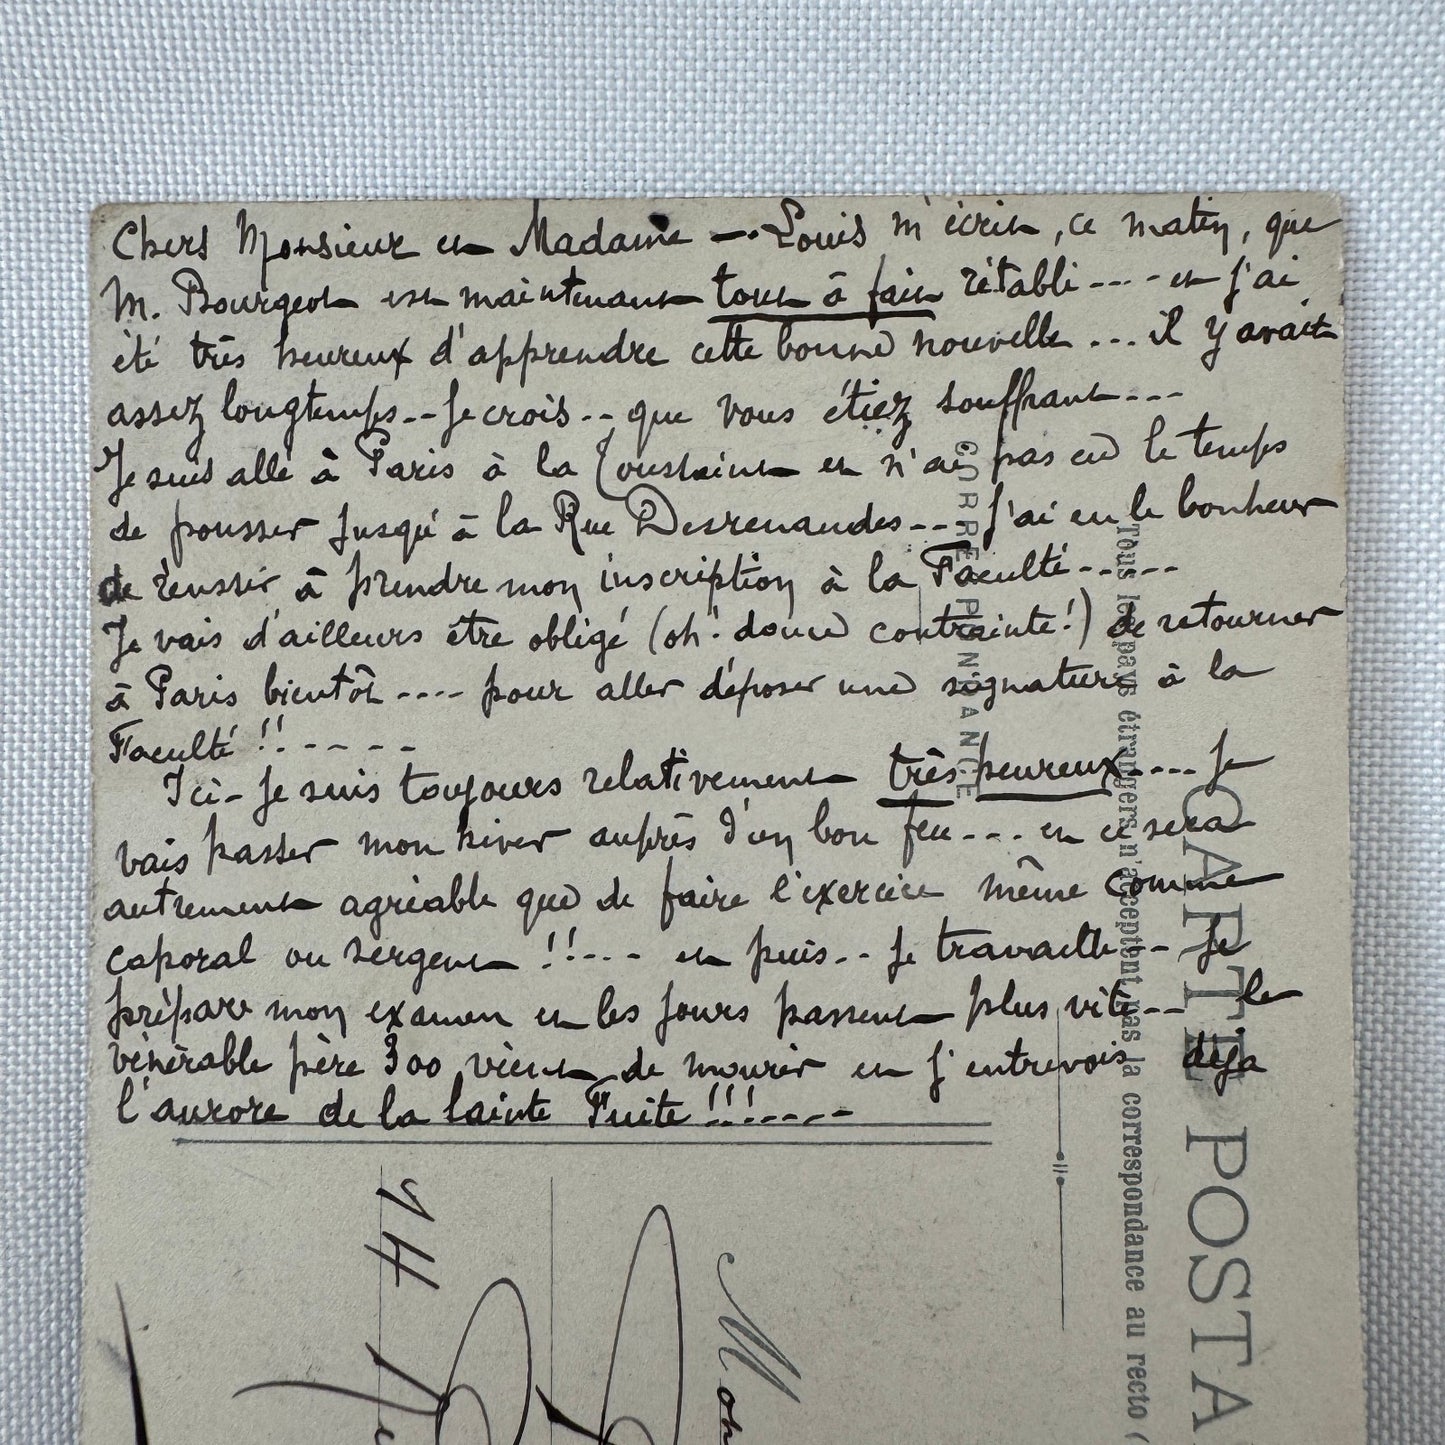 Chers Monsieur et Madame —. Louis m'écrit, ce matin, que
M. Bourgeot est maintenant tout à fait rétabli ---- et j'ai
été très heureux d'apprendre cette bonne nouvelle ... il y avait
assez longtemps -- je crois -- que vous étiez souffrant ---
Je suis allé à Paris à la Toussaint et n'ai pas eu le temps
de pousser jusqu'à la Rue Desrenaudes --- j'ai eu le bonheur
de réussir à prendre mon inscription à la Faculté -----
Je vais d'ailleurs être obligé (oh! douce contrainte!) de retourner
à Paris bientôt ---- pour aller déposer une signature à la
Faculté !! -----
Ici - je suis toujours relativement très heureux ---- Je
vais passer mon hiver auprès d'un bon feu --- et ce sera
autrement agréable que de faire l'exercice même comme
caporal ou sergent !! --- et puis -- je travaille -- je
prépare mon examen et les jours passent plus vite --- le
vénérable père 300 vient de mourir et j'entrevois déjà
l'aurore de la sainte Fuite !!! ----
CORRESPONDANCE
Tous les pays étrangers n'acceptent pas la correspondance au recto (
CARTE POSTA
Mon
14